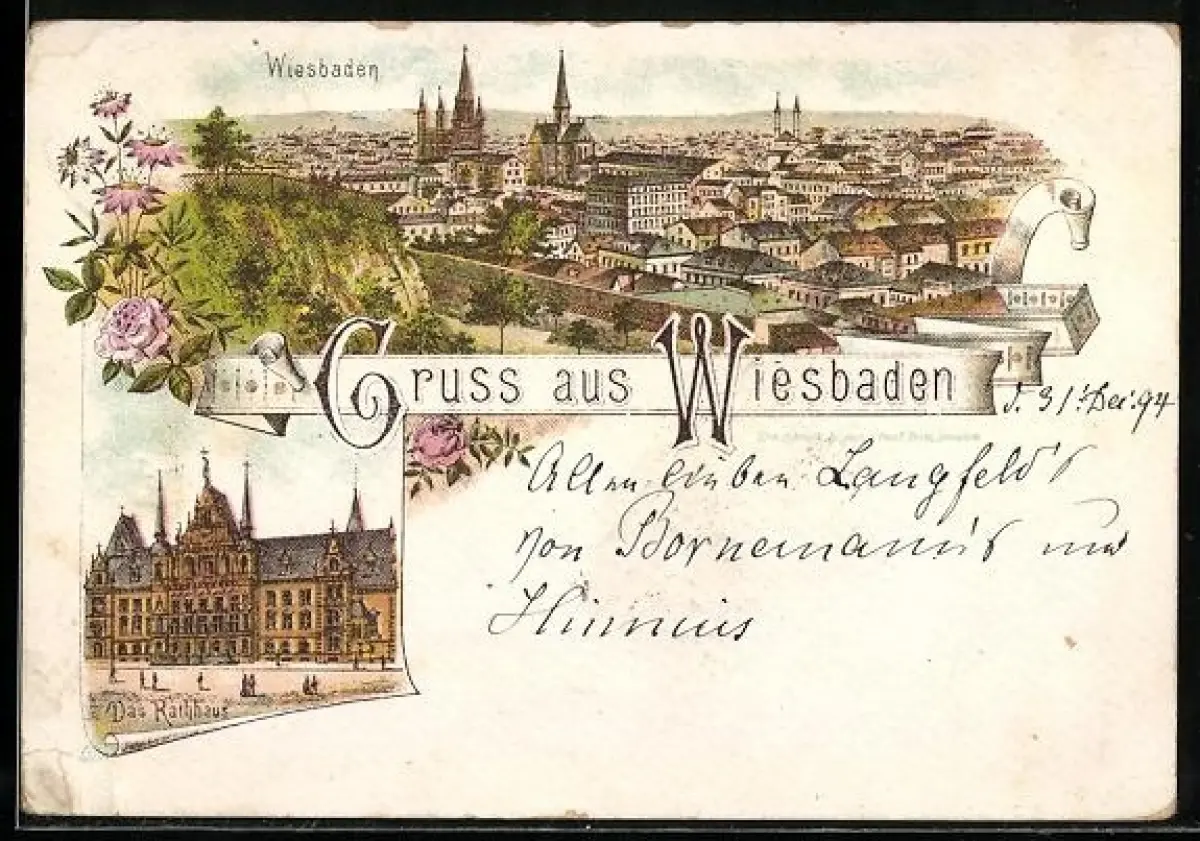 Wiesbaden
Gruss aus Wiesbaden
d. 31. Dec. 94
Allen lieben Langfeld's
von Bornemann's und
Das Rathhaus